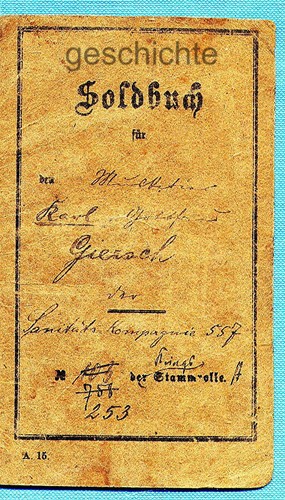 geschichte
Soldbuch
für
den
Karl
Giersch
der
Sanitäts Kompagnie 557
Kriegs
№ der Stammrolle.
788
253
A. 15.